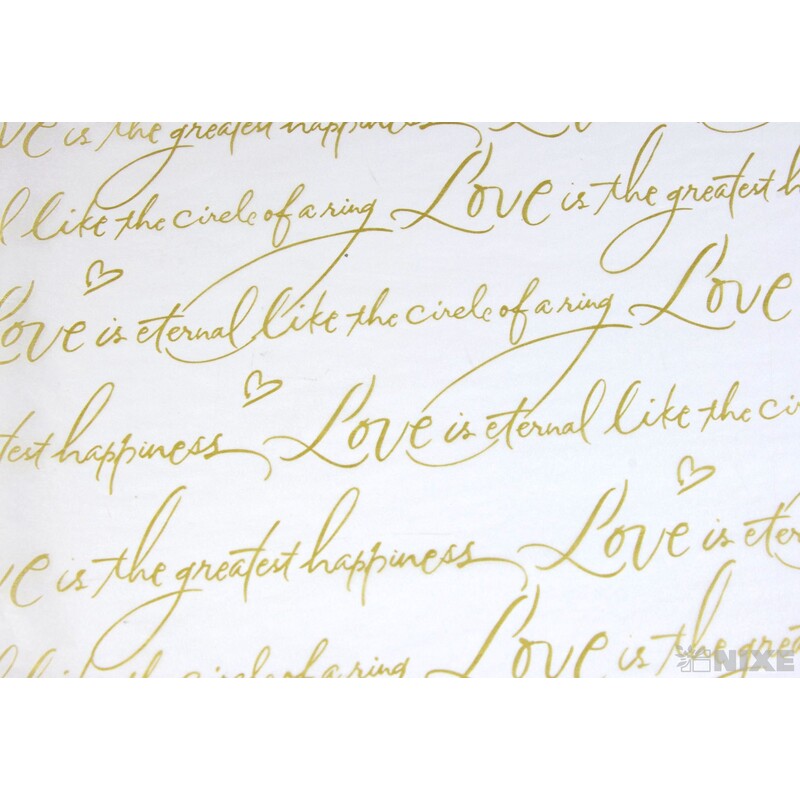 ve is the greatest happiness Lov
l like the circle of a ring Love is the greatest h
Love is eternal like the circle of a ring Love
test happiness Love is eternal like the ci
ve is the greatest happiness Love is eter
l like the circle of a ring Love is the grea
NIXE